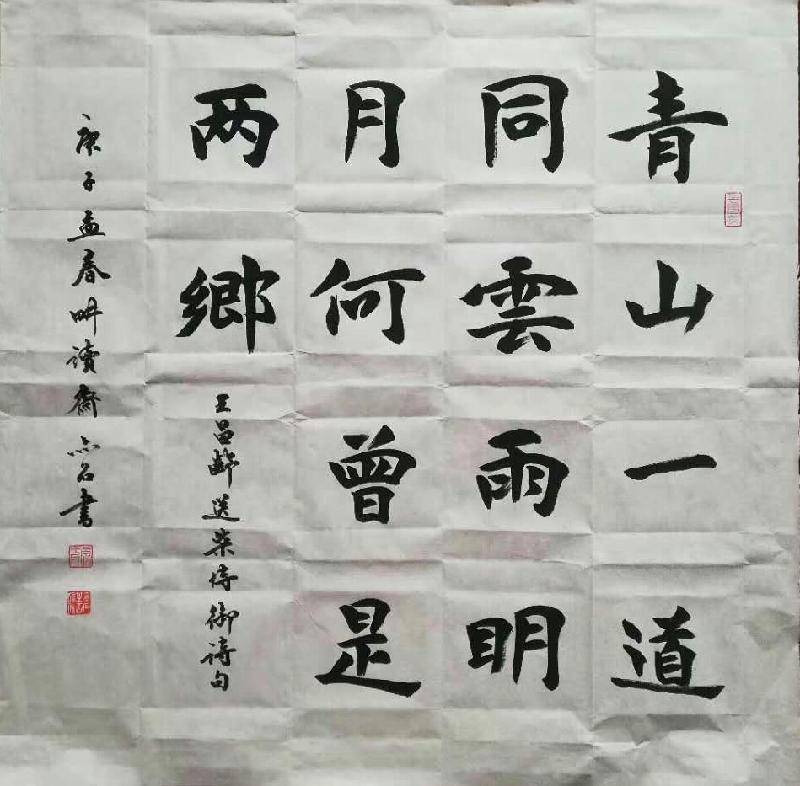 青山一道
同雲雨明
月何曾是
两鄉
王昌齡送柴侍御詩句
庚子孟春畊讀齋亦石書